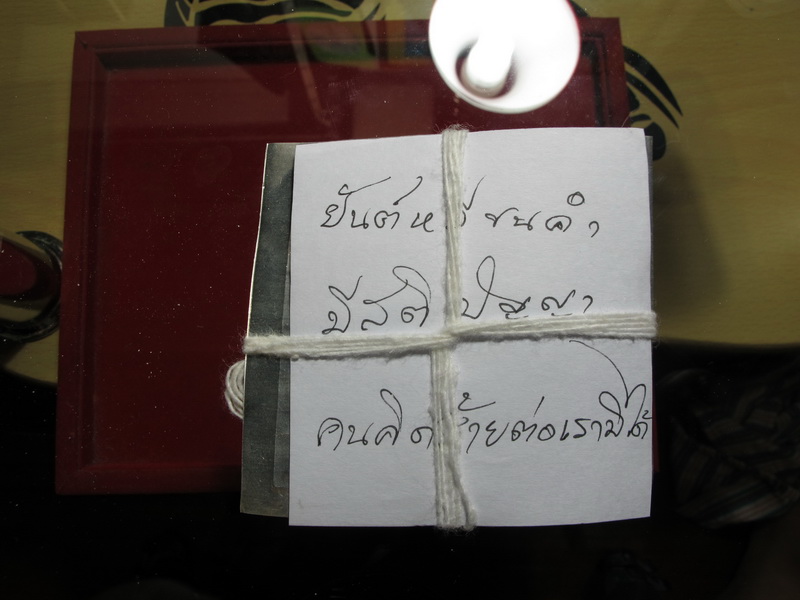 ยันต์หรียนคำ
มีสติ ปัญญา
คนคิดร้ายต่อเรามิได้